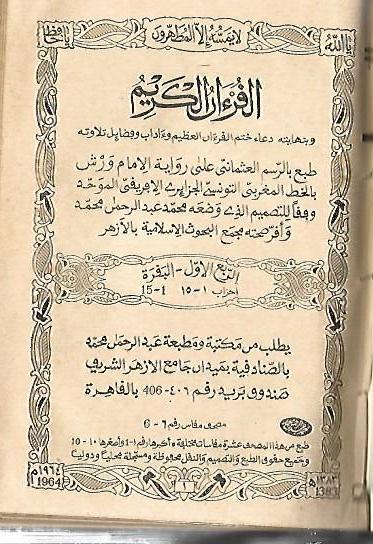 يا حافظ
لا يمسه إلا المطهرون
يا الله
القرءان الكريم
وبنهايته دعاء ختم القرءان العظيم وءاداب وفضايل تلاوته
طبع بالرسم العثماني على رواية الإمام ورش
بالخط المغربي التونسي الجزايري الإفريقي الموحد
وفقا للتصميم الذي وضعه محمد عبد الرحمن محمد
وأقر صحته مجمع البحوث الإسلامية بالأزهر
الربع الأول - البقرة
أحزاب ١ - ١٥ 4 - 15
يطلب من مكتبة ومطبعة عبد الرحمن محمد
بالصنادقية بميدان جامع الأزهر الشريف
صندوق بريد رقم ٤٠٦ - 406 بالقاهرة
مصحف مقاس رقم ٦ - 6
طبع من هذا المصحف عشرة مقاسات مختلفة وأكبرها رقم ١-1 وأصغرها ١٠ - 10
وجميع حقوق الطبع والتصميم والنقل محفوظة ومسجلة محليا ودوليا
١٩٦٤ م
1964
١
١٣٨٣ ه
1383